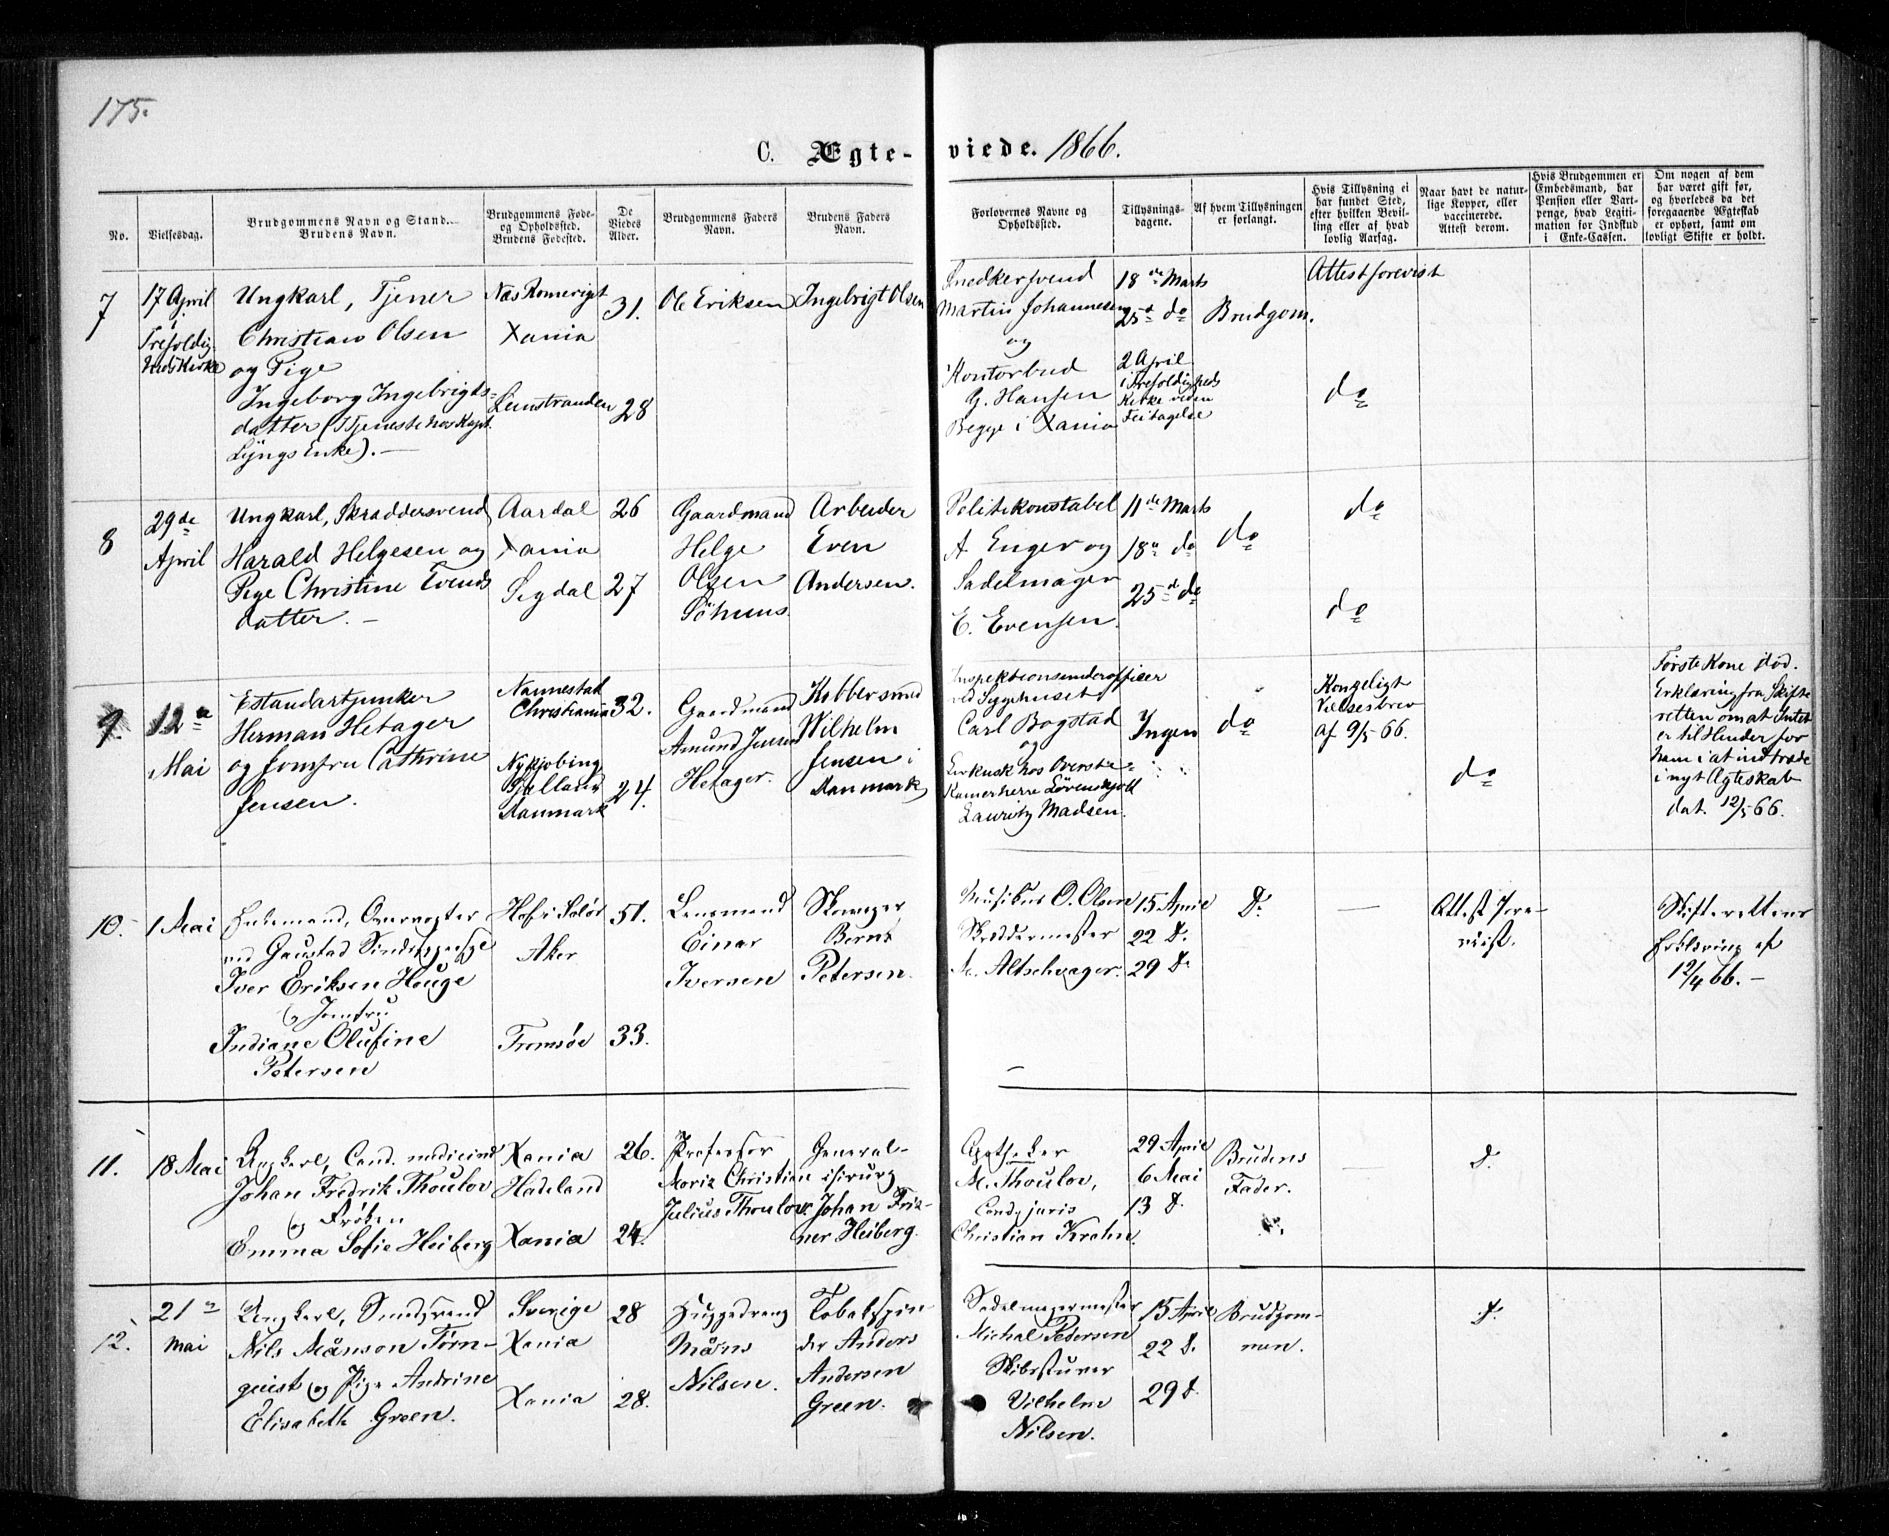 175.
C. Ægteviede. 1866.
No.
Vielsesdag.
Brudgommens Navn og Stand.
Brudens Navn.
Brudgommens Føde-
og Opholdssted.
Brudens Fødested.
De
Viedes
Alder.
Brudgommens Faders
Navn.
Brudens Faders
Navn.
Forlovernes Navne og
Opholdssted.
Tillysnings-
dagene.
Af hvem Tillysningen
er forlangt.
Hvis Tillysning ei
har fundet Sted,
efter hvilken Bevil-
ling eller af hvad
lovlig Aarsag.
Naar havt de natur-
lige Kopper, eller
vaccinerede.
Attest derom.
Hvis Brudgommen er
Embedsmand, har
Pension eller Vart-
penge, hvad Legiti-
mation for Indskud
i Enke-Cassen.
Om nogen af dem
har været gift før,
og hvorledes da det
foregaaende Ægteskab
er ophørt, samt om
lovligt Skifte er holdt.
7
17 April
i
Trefoldig-
hedskirke
Ungkarl, Tjener
Christian Olsen
og Pige
Ingeborg Ingebrigts-
datter (Tjeneste hos Kapt.
Lyngs Enke). —
Næs Romerigt
Xania
31.
28
Ole Eriksen
Ingebrigt Olsen
Snedkersvend
Martin Johannesen
og
Kontorbud
G. Hansen
Begge i Xania
18de Marts
25d do
2 April
i Trefoldigheds
Kirke
Brudgom.
Attest forevist
do
8
29de
April
Ungkarl, Skræddersvend
Harald Helgesen og
Pige Christine Evends
datter. —
Aardal
Xania
Sigdal
26
27
Gaardmand
Helge
Olsen
Arbeider
Even
Andersen.
Politikonstabel
A Enger og
Sadelmager
E. Evensen.
11de Marts
18de do
25d do
do
do
do
9.
12te
Mai
Estandartjunker
Herman Hetager
og Jomfru Cathrine
Jensen.
Nannestad
Christiania
Nykjøbing
Danmark
32.
24.
Gaardmand
Amund Jensen
Hetager.
Kobbersmed
Wilhelm
Jensen i
Danmark
Inspektionsunderofficer
ved Sygehuset
Carl Bogstad
og
Kusk hos Oberst
Kamerherre Løvenskjold
Lauritz Madsen.
Ingen
do
Kongeligt
Vielsesbrev
af 9/5-66.
do
Første Kone død.
Erklæring fra Skifte
retten om at Intet
er til Hinder for
ham i at indtræde
i nyt Ægteskab
dat. 12/5 66.
10.
1 Mai
Enkemand, Overvogter
ved Gaustad Sindssygeasyl
Iver Eriksen Houge
og Jomfru
Indiane Olufine
Petersen
Hof i Solør
Aker
Tromsøe
51.
33.
Lensmand
Einar
Iversen
Skomager
Bernt
Petersen.
Musikus O. Olsen
Skræddermester
M. Altschwager.
15 April
22 D.
29 D.
D.
—
Attest fore-
viist.
Skifterettens
Erklæring af
12/4 66. —
11.
18 Mai
Ungkarl, Cand. medicinæ
Johan Fredrik Thoulov
og Frøken
Emma Sofie Heiberg
Xania
Hadeland
Xania
26.
24.
Professor
Moriz Christian
Julius Thoulov
General-
chirurg
Johan Frit-
ner Heiberg.
Apotheker
M. Thoulov,
Cand. juris
Christian Krohn.
29 April
6 Mai
13 D.
Brudens
Fader.
—
D.
12.
21
Mai
Ungkarl, Smedsvend
Nils Månson Törn-
quist og Pige Andrine
Elisabeth Green.
Sverige
Xania
Xania
28
28.
Måns
Nilsen.
Tobakspin-
der Anders
Andersen
Green.
Sadelmagermester
Michal Petersen
Skibsstuver
Vilhelm
Nilsen.
15 April
22 D.
29 D.
Brudgom-
men.
D.